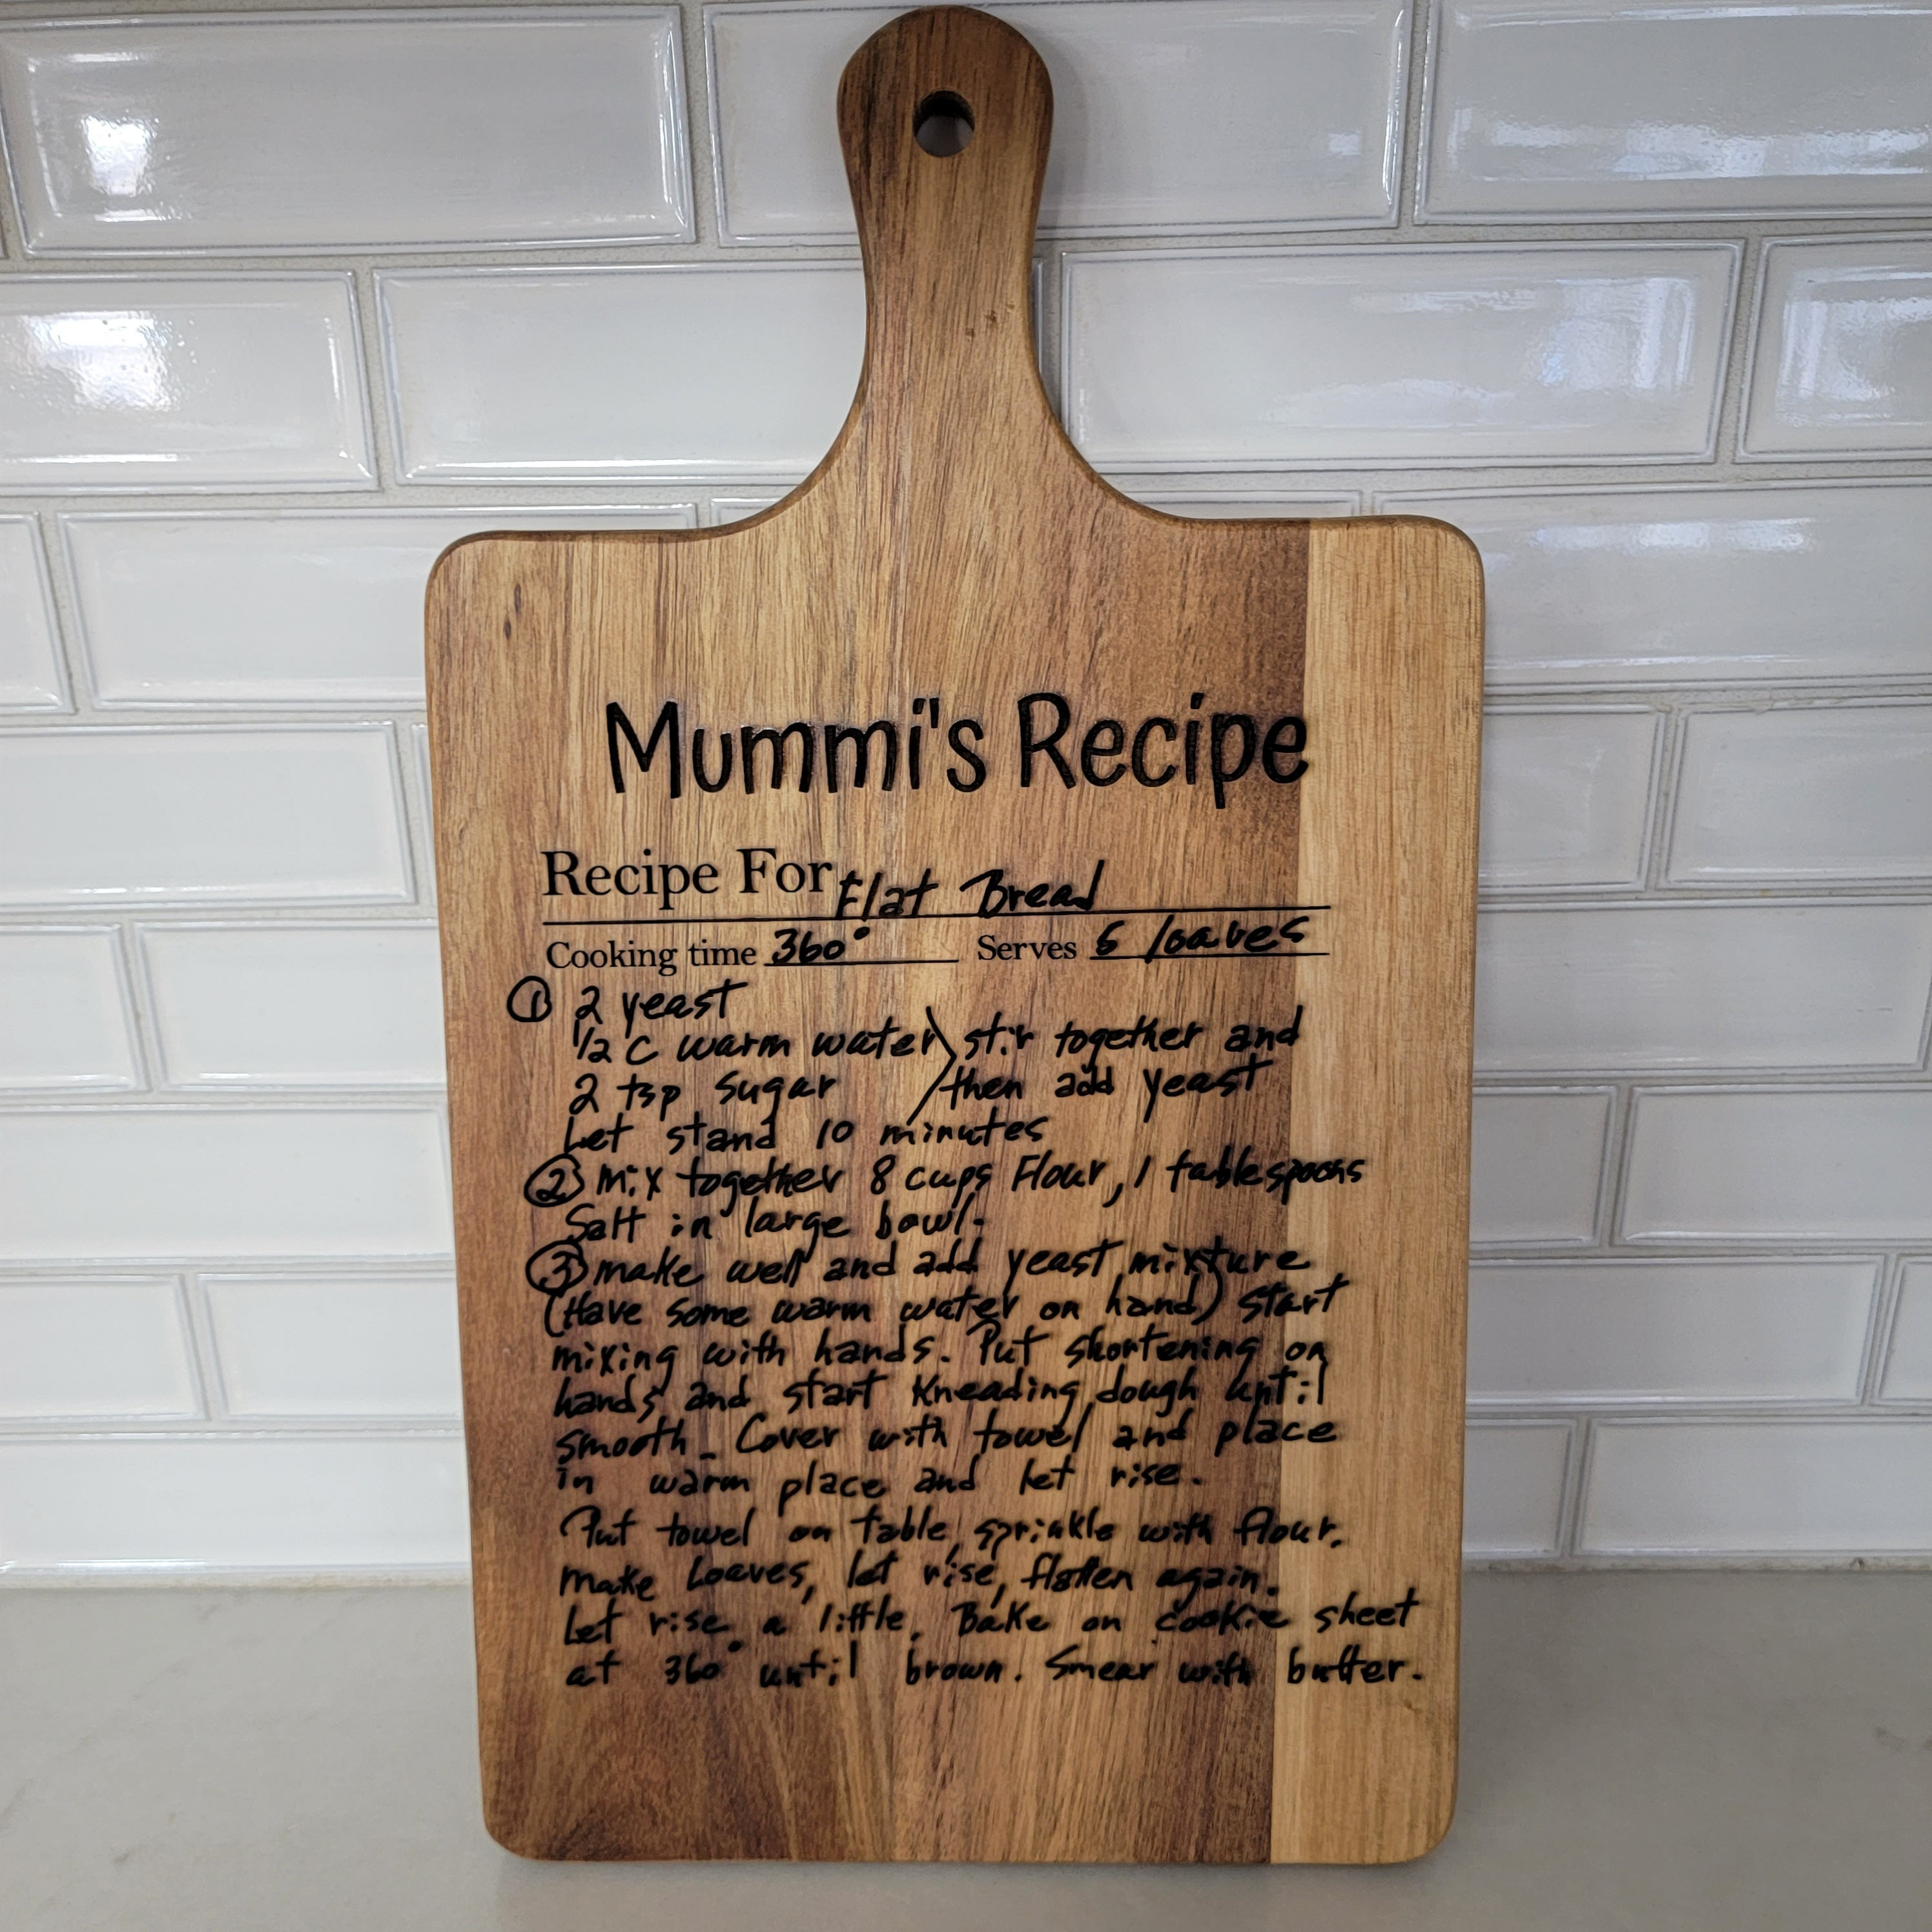 Mummi's Recipe
Recipe For Flat Bread
Cooking time 360° Serves 6 loaves
① 2 yeast
1/2 C warm water stir together and
2 tsp sugar then add yeast
Let stand 10 minutes
② mix together 8 cups Flour, 1 tablespoons
Salt in large bowl.
③ make well and add yeast mixture
(Have some warm water on hand) start
mixing with hands. Put shortening on
hands and start kneading dough until
smooth. Cover with towel and place
in warm place and let rise.
Put towel on table, sprinkle with flour.
make Loaves, let rise, flatten again.
Let rise a little. Bake on cookie sheet
at 360° until brown. Smear with butter.